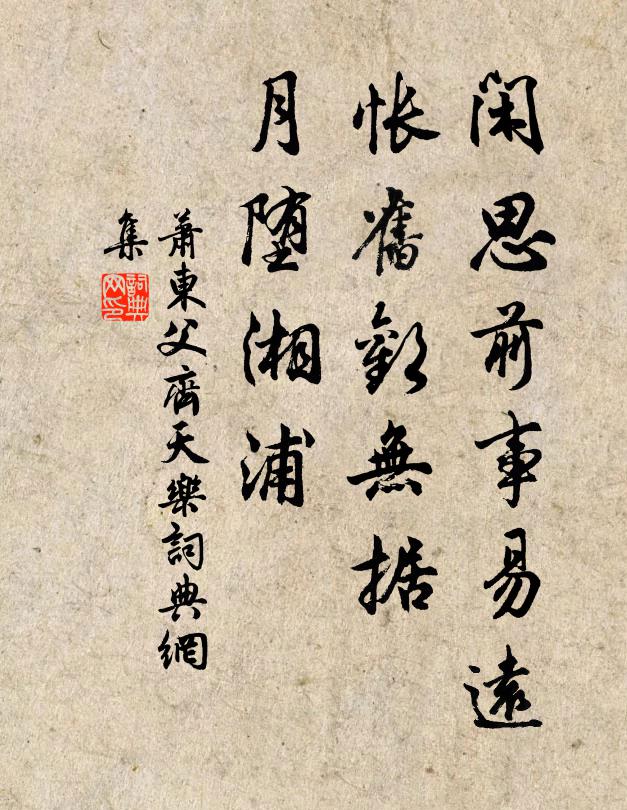 閑思前事易遠
悵舊歡無据
月墮湘浦
蕭東父齊天樂詞典網
集
詞典
网印